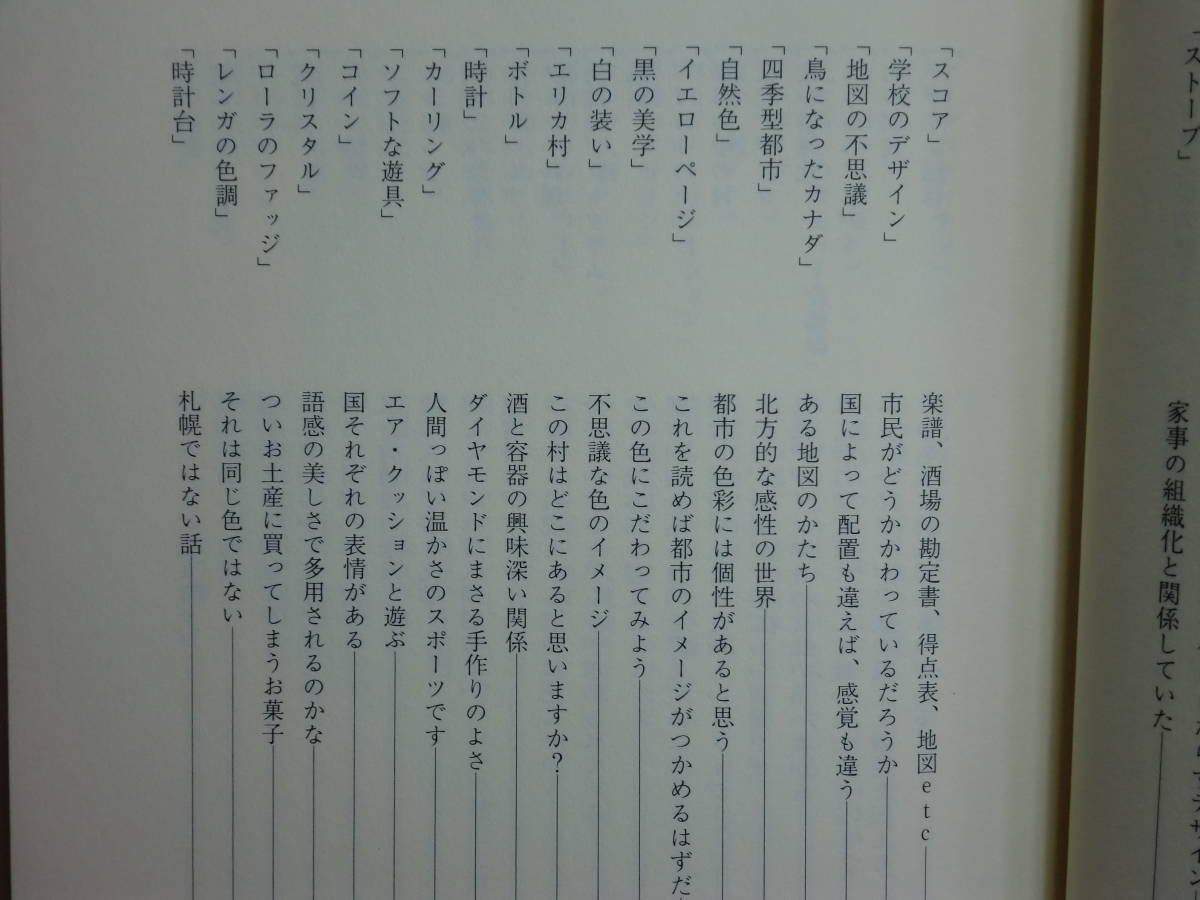 「ストーブ」 家事の組織化と関係していた
「スコア」 楽譜、酒場の勘定書、得点表、地図etc
「学校のデザイン」 市民がどうかかわっているだろうか
「地図の不思議」 国によって配置も違えば、感覚も違う
「鳥になったカナダ」 ある地図のかたち
「四季型都市」 北方的な感性の世界
「自然色」 都市の色彩には個性があると思う
「イエローページ」 これを読めば都市のイメージがつかめるはずだ
「黒の美学」 この色にこだわってみよう
「白の装い」 不思議な色のイメージ
「エリカ村」 この村はどこにあると思いますか?
「ボトル」 酒と容器の興味深い関係
「時計」 ダイヤモンドにまさる手作りのよさ
「カーリング」 人間っぽい温かさのスポーツです
「ソフトな遊具」 エア・クッションと遊ぶ
「コイン」 国それぞれの表情がある
「クリスタル」 語感の美しさで多用されるのかな
「ローラのファッジ」 ついお土産に買ってしまうお菓子
「レンガの色調」 それは同じ色ではない
「時計台」 札幌ではない話